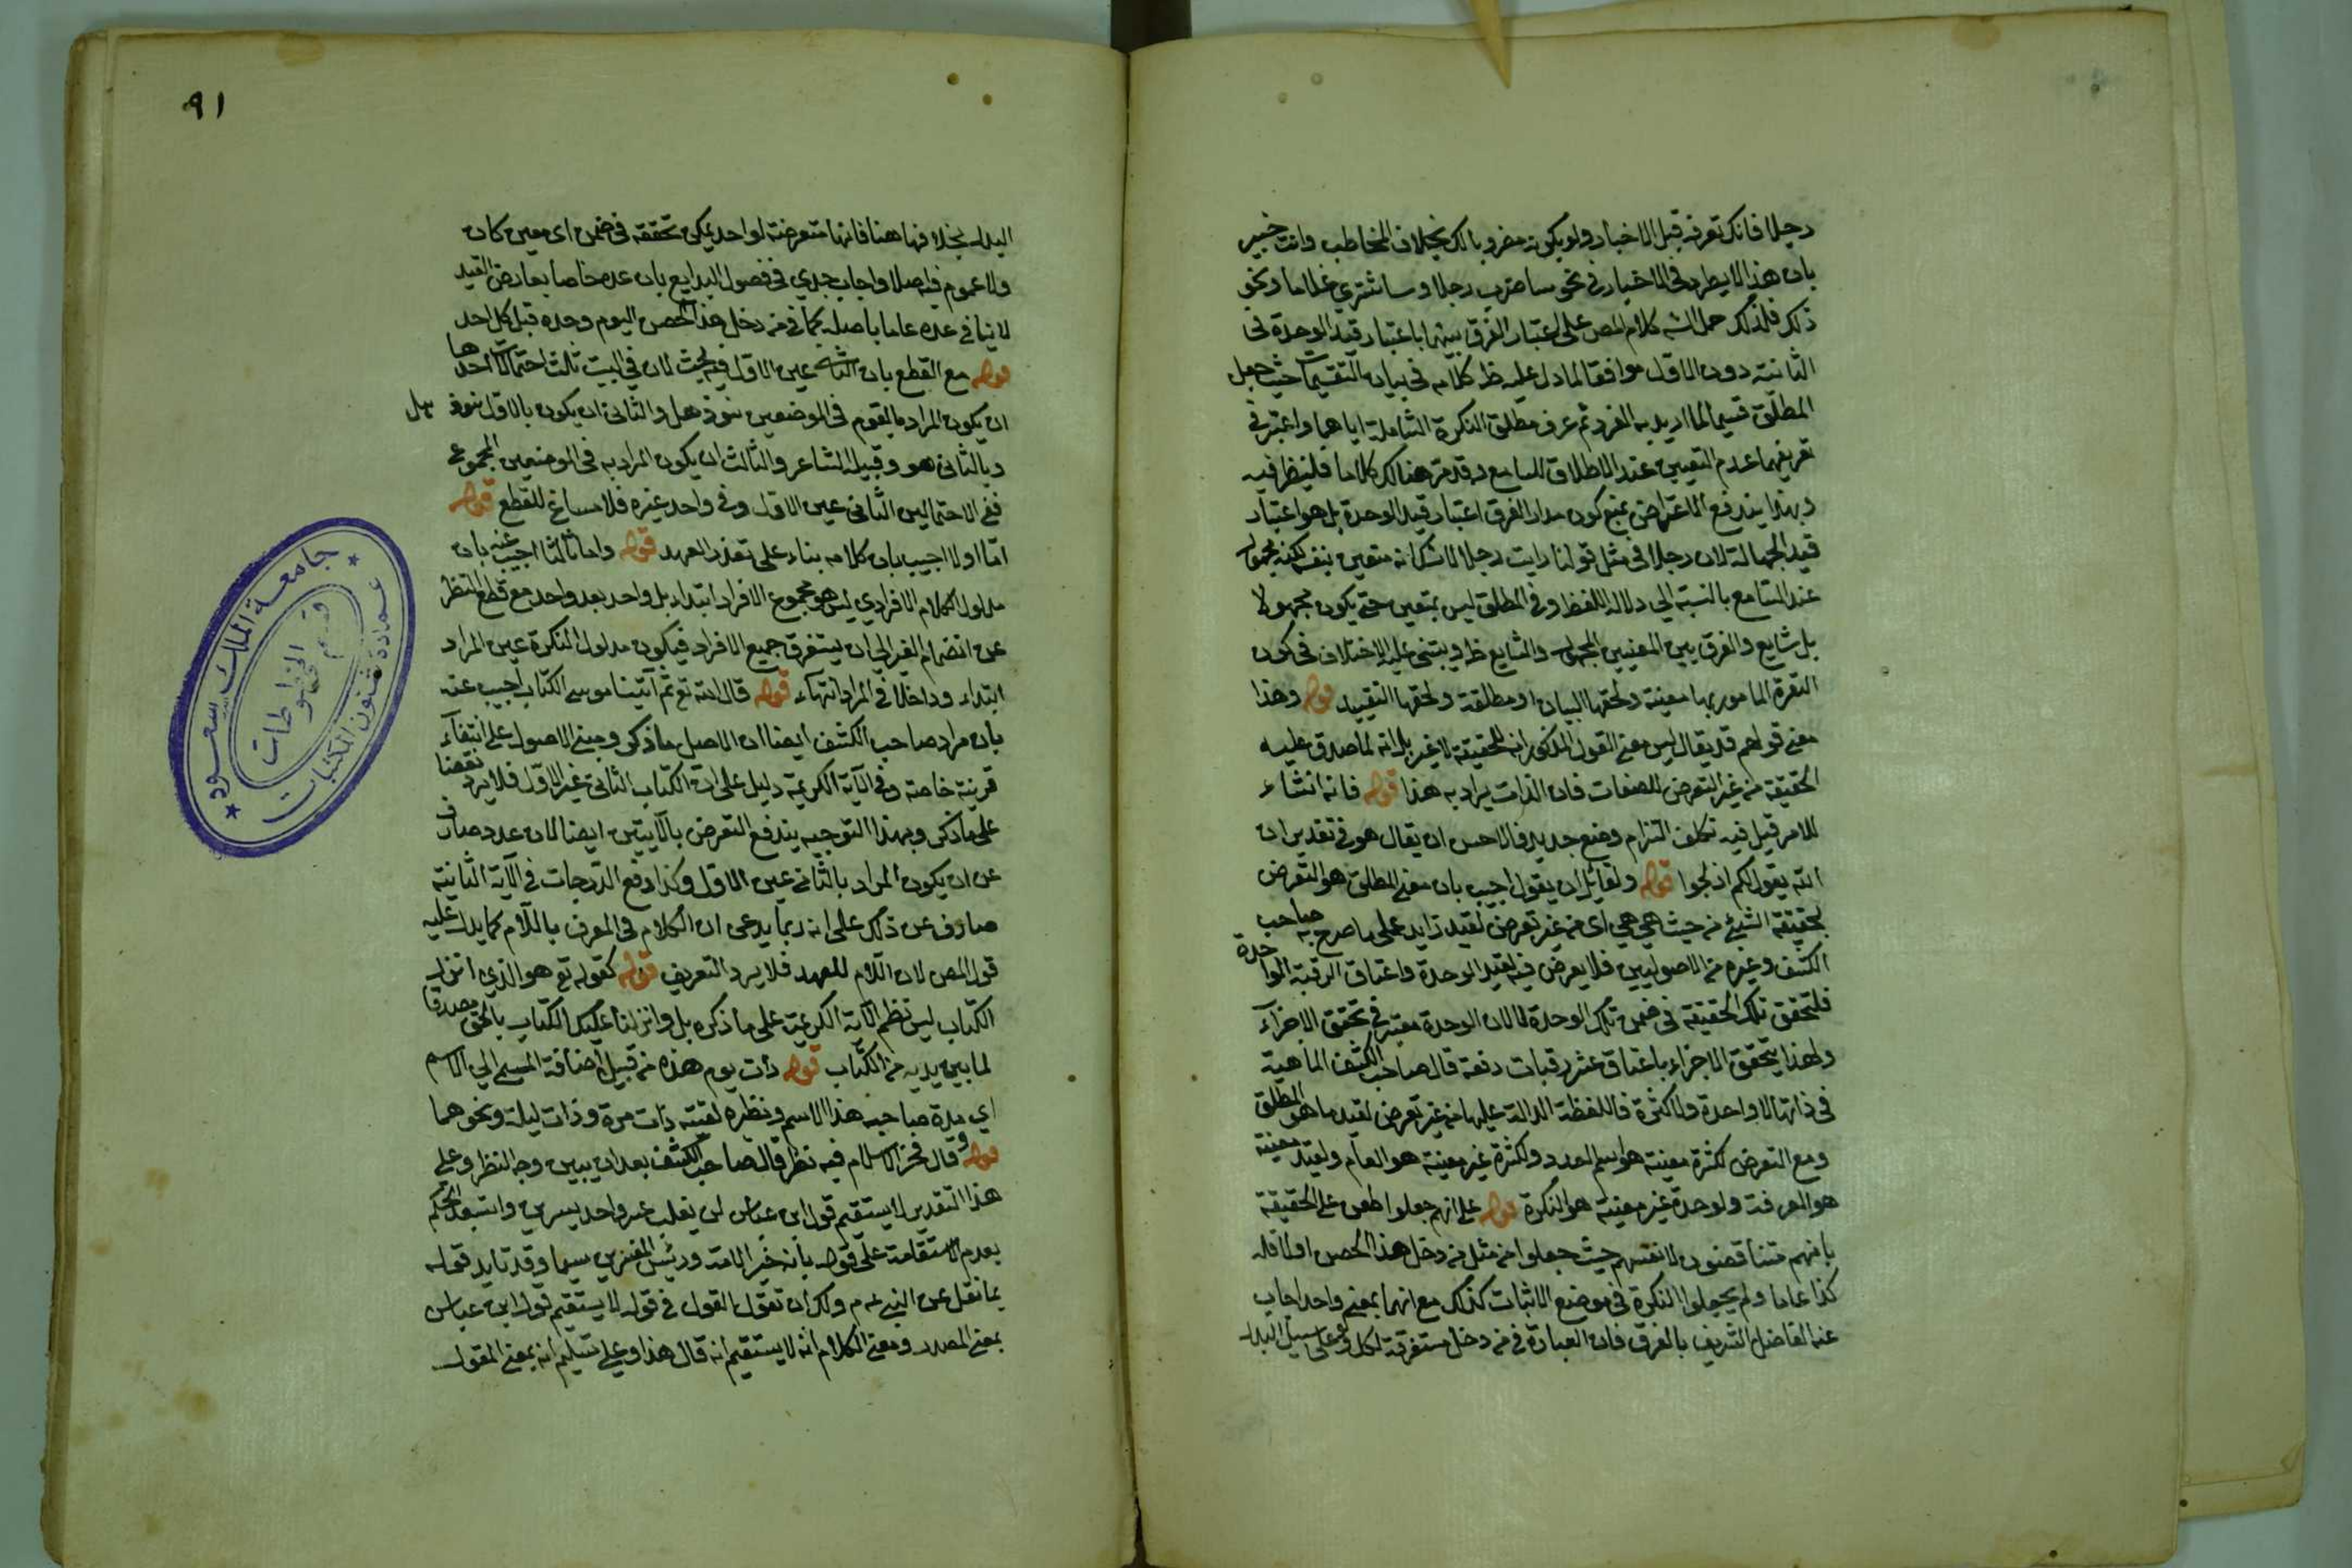 رجلا فانك تعرفه قبل الاخبار ولو بكونه مضروبا لك بخلاف المخاطب وانت خبير
بان هذا لا يطرد في الاخبار في نحو ساضرب رجلا وساشتري غلاما ونحو
ذلك فلذلك حمل الشه كلام المص على اعتبار الفرق بينهما باعتبار قيد الوحدة في
الثانية دون الاول موافقا لما دل عليه ظ كلامه في بيان التقسيمات حيث جعل
المطلق قسيما لما اريد به الفرد ثم عرف مطلق النكرة الشاملة اياهما واعتبر في
تعريفهما عدم التعيين عند الاطلاق للسامع وقد مر هنالك كلاما فلينظر فيه
وبهذا يندفع الاعتراض بمنع كون مدار الفرق اعتبار قيد الوحدة بل هو اعتبار
قيد الجهالة لان رجلا في مثل قولنا رايت رجلا لا شك انه متعين بنفسه لكنه مجهول
عند السامع بالنسبة الى دلالة اللفظ وفي المطلق ليس بمتعين حتى يكون مجهولا
بل شايع والفرق بين المعنيين المجهول والشايع ظ ويبتنى عليه الاختلاف في كون
البقرة المامور بها معينة ولحقها البيان او مطلقة ولحقها التقييد قوله وهذا
معنى قولهم قد يقال ليس معنى القول المذكور انه للحقيقة لا غير بل انه لما صدق عليه
الحقيقة من غير التعرض للصفات فان الذات يراد به هذا قوله فانه انشاء
للامر قيل فيه تكلف التزام وضع جديد فالاحسن ان يقال هو في تقدير ان
الله يقول لكم اذبحوا قوله ولقائل ان يقول اجيب بان معنى المطلق هو التعرض
بحقيقة الشئ من حيث هي هي اى من غير تعرض لقيد زايد على ما صرح به صاحب
الكشف وغيره من الاصوليين فلا يعرض فيه لقيد الوحدة واعتاق الرقبة الواحدة
فلتحقق تلك الحقيقة في ضمن تلك الوحدة لا لان الوحدة معتبر في تحقق الاجزاء
ولهذا يتحقق الاجزاء باعتاق عشر رقبات دفعة قال صاحب الكشف الماهية
في ذاتها لا واحدة ولا كثرة فاللفظة الدالة عليها من غير تعرض لقيد ما هو المطلق
ومع التعرض لكثرة معينة هو اسم العدد ولكثرة غير معينة هو العام ولقيد معينة
هو المعرفة ولوحدة غير معينة هو النكرة قوله على انهم جعلوا طعن على الحقيقة
بانهم متناقضون لانفسهم حيث جعلوا من مثل من دخل هذا الحصن اولا فله
كذا عاما ولم يجعلوا النكرة في موضع الاثبات كذلك مع انهما بمعنى واحد اجاب
عنه الفاضل الشريف بالفرق فان العبارة في من دخل مستغرقة لكل وعلى سبيل البدل
٩١
البدل بخلافها هنا فانها متعرضة لواحد يمكن تحققه في ضمن اى معين كان
ولا عموم فيه اصلا واجاب جدي في فصول البدايع بان عده خاصا بعارض القيد
لا ينافي عده عاما باصله كما في من دخل هذا الحصن اليوم وحده قبل كل احد
قوله مع القطع بان الثاني عين الاول فيه بحث لان في البيت ثلث احتمالات احدها
ان يكون المراد بالقوم في الموضعين بنو ذهل والثاني ان يكون بالاول بنو ذهل
وبالثاني هو وقبيلة الشاعر والثالث ان يكون المراد به في الموضعين المجموع
ففي الاحتمالين الثاني عين الاول وفي واحد غيره فلا مساغ للقطع قوله
اما اولا اجيب بان كلامه بناء على تعذر العهد قوله واما ثالثا اجيب عنه بان
مدلول الكلام الافرادي ليس هو مجموع الافراد ابتداء بل واحد بعد واحد مع قطع النظر
عن انضمام الغير الى ان يستغرق جميع الافراد فيكون مدلول النكرة عين المراد
ابتداء وداخلا في المراد انتهاء قوله قال الله تع ثم آتينا موسى الكتاب اجيب عنه
بان مراد صاحب الكشف ايضا ان الاصل ما ذكر ومبنى الاصول على انتفاء
قرينة خاصة وفي الآية الكريمة دليل على ان الكتاب الثاني غير الاول فلا يرد نقضا
على ما ذكر وبهذا التوجيه يندفع التعرض بالآيتين ايضا لان عدد صارف
عن ان يكون المراد بالثاني عين الاول وكذا رفع الدرجات في الآية الثانية
صارف عن ذلك على انه ربما يدعى ان الكلام في المعرف باللام كما يدل عليه
قول المص لان اللام للعهد فلا يرد التعريف قوله كقوله تع هو الذي انزل
الكتاب ليس نظم الآية الكريمة على ما ذكره بل وانزلنا عليك الكتاب بالحق مصدقا
لما بين يديه من الكتاب قوله ذات يوم هذه من قبيل اضافة المسمى الى الاسم
اي مدة صاحبة هذا الاسم ونظيره لقيته ذات مرة وذات ليلة ونحوهما
قوله وقال فخر الاسلام فيه نظر قال صاحب الكشف بعد ان يبين وجه النظر وعلى
هذا التقدير لا يستقيم قول ابن عباس لن يغلب عسر واحد يسرين واستبعد الحكم
بعدم الاستقامة على قوله بانه خير الامة ورئيس المفسرين سيما وقد تايد قوله
بما نقل عن النبي عم ولك ان تقول القول في قوله لا يستقيم قول ابن عباس
بمعنى المصدر ومعنى الكلام انه لا يستقيم انه قال هذا وعلى تسليم انه بمعنى المقول
جامعة الملك سعود
عمادة شئون المكتبات
قسم المخطوطات